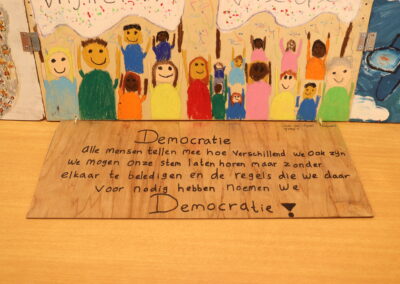 Democratie
Alle mensen tellen mee hoe verschillend we ook zijn
We mogen onze stem laten horen maar zonder
elkaar te beledigen en de regels die we daar
voor nodig hebben noemen we
Democratie!